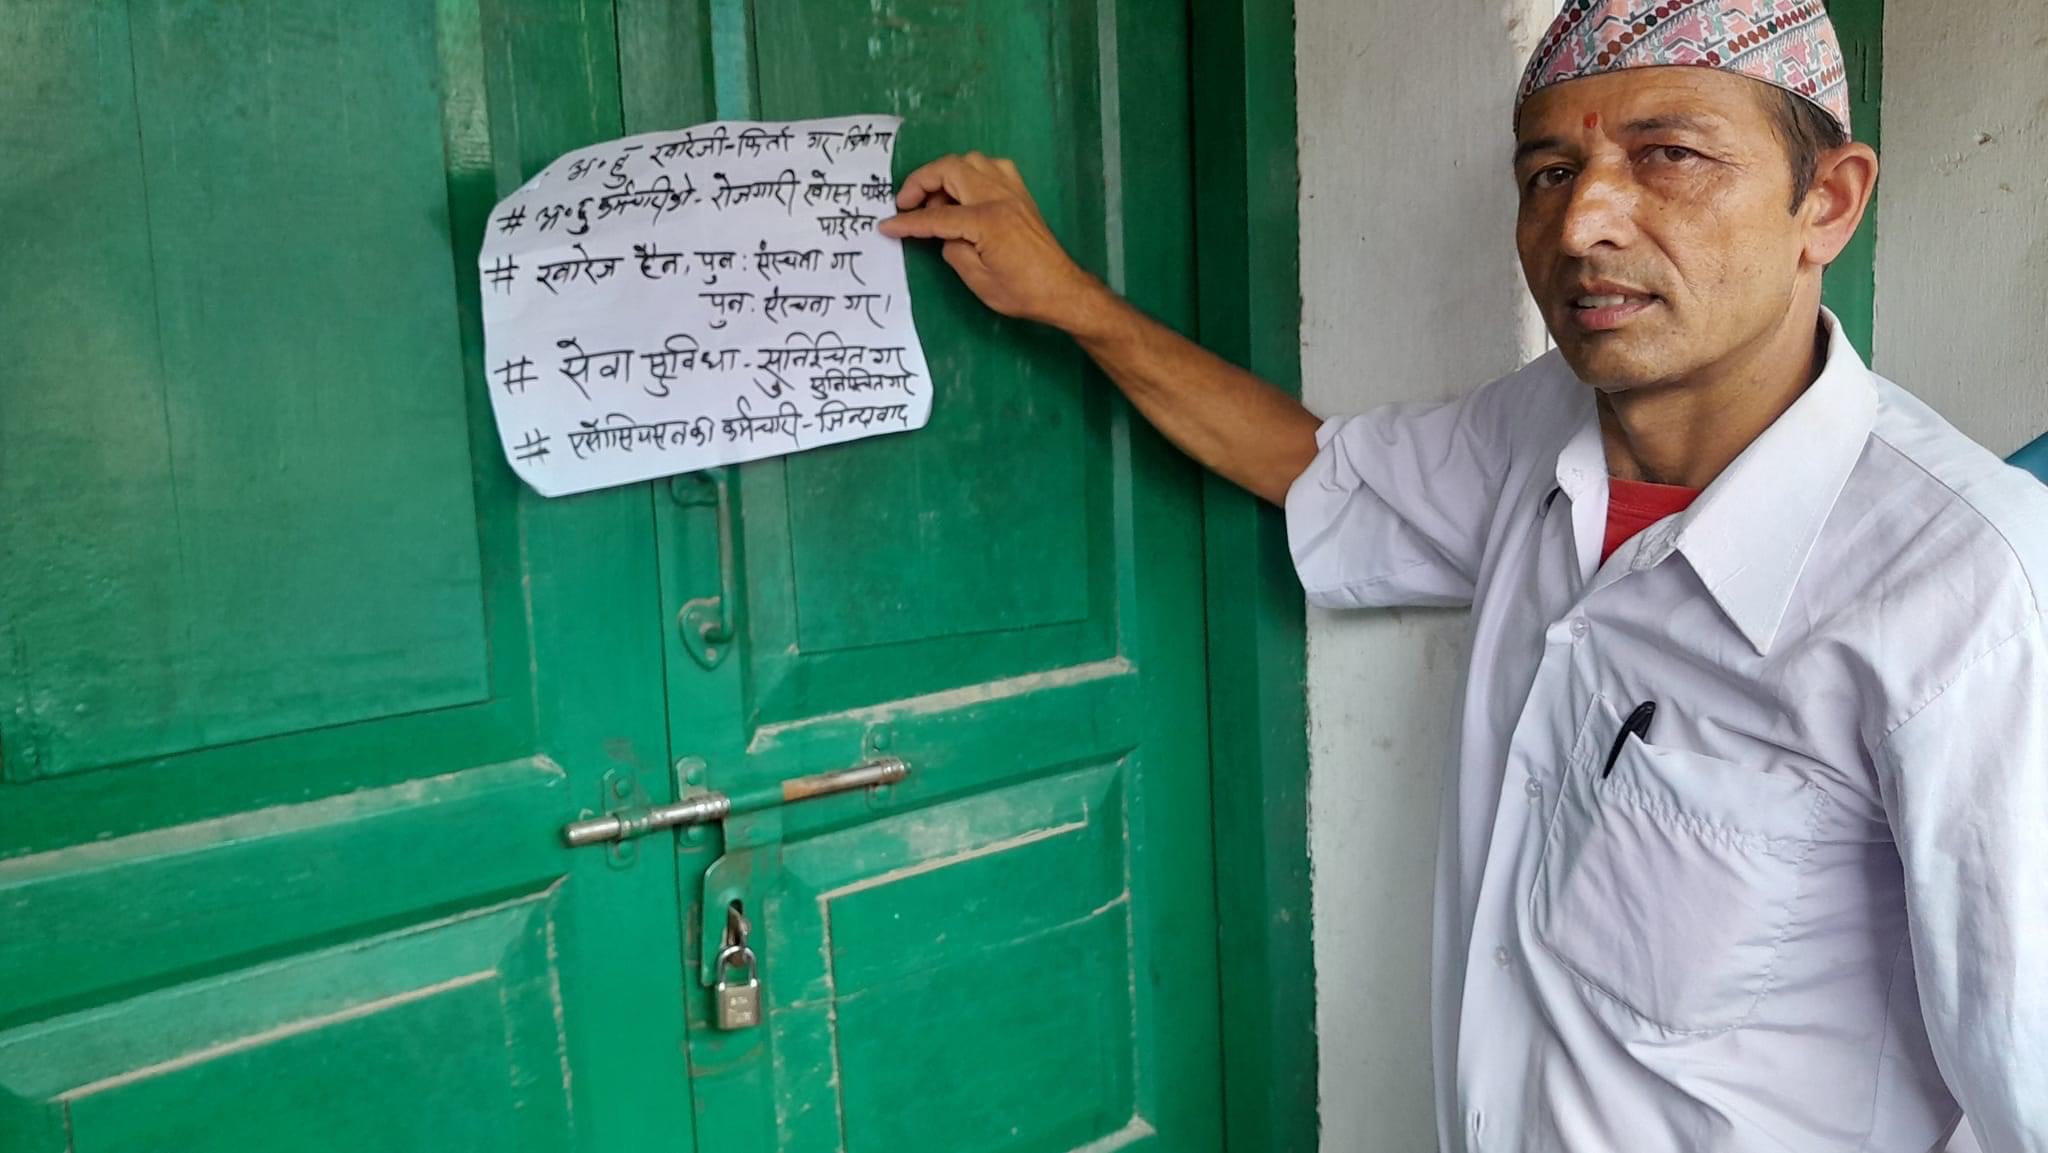 अ॰हु खारेजी-फिर्ता गर, फिर्ता गर
# अ॰हु कर्मचारीको-रोजगारी खोस्न पाईदैन
पाईदैन
# खारेज हैन, पुन: संरचना गर
पुन: संरचना गर।
# सेवा सुविधा-सुनिश्चित गर
सुनिश्चित गर
# एसोसियसनका कर्मचारी-जिन्दावाद